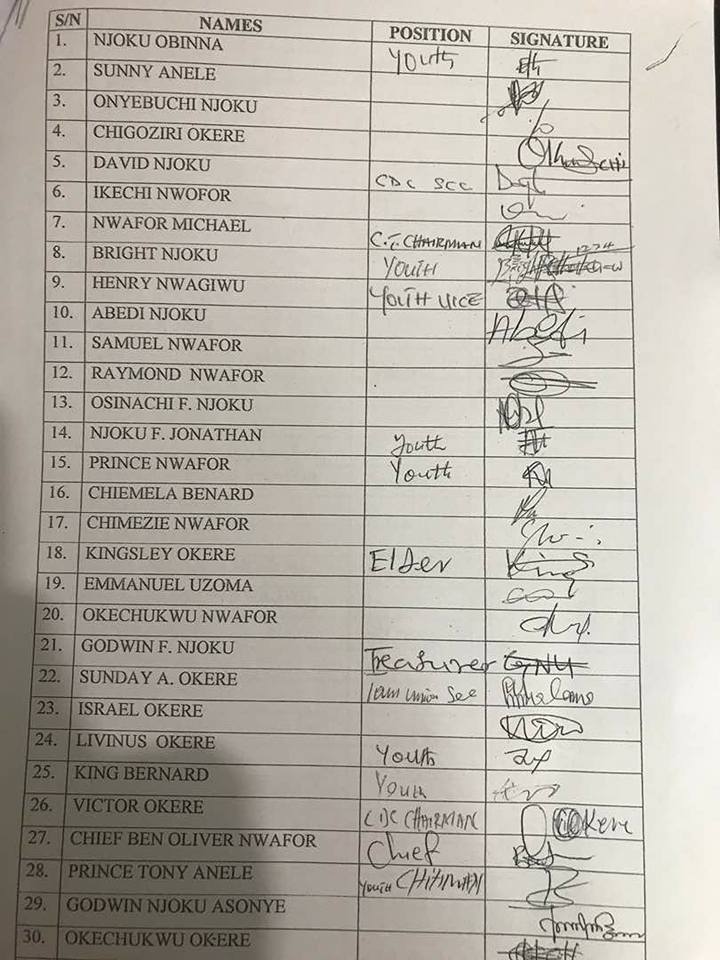 S/N NAMES POSITION SIGNATURE
1. NJOKU OBINNA Youth
2. SUNNY ANELE
3. ONYEBUCHI NJOKU
4. CHIGOZIRI OKERE
5. DAVID NJOKU CDC SCC
6. IKECHI NWOFOR
7. NWAFOR MICHAEL C.T. CHAIRMAN
8. BRIGHT NJOKU YOUTH
9. HENRY NWAGIWU YOUTH VICE
10. ABEDI NJOKU Abedi
11. SAMUEL NWAFOR
12. RAYMOND NWAFOR
13. OSINACHI F. NJOKU
14. NJOKU F. JONATHAN Youth
15. PRINCE NWAFOR Youth
16. CHIEMELA BENARD
17. CHIMEZIE NWAFOR
18. KINGSLEY OKERE Elder King
19. EMMANUEL UZOMA
20. OKECHUKWU NWAFOR
21. GODWIN F. NJOKU Treasurer
22. SUNDAY A. OKERE Town union Sec
23. ISRAEL OKERE
24. LIVINUS OKERE Youth
25. KING BERNARD Youth
26. VICTOR OKERE CDC CHAIRMAN Okere
27. CHIEF BEN OLIVER NWAFOR Chief
28. PRINCE TONY ANELE YOUTH CHAIRMAN
29. GODWIN NJOKU ASONYE
30. OKECHUKWU OKERE